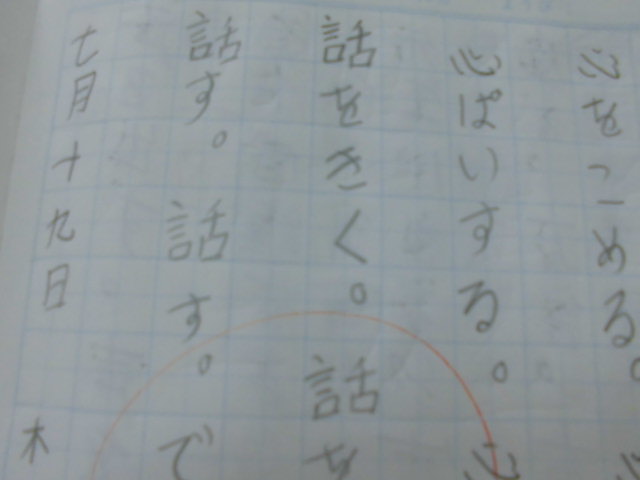 心をこめる。
心ぱいする。心
話をきく。話を
話す。話す。で
七月十九日 木